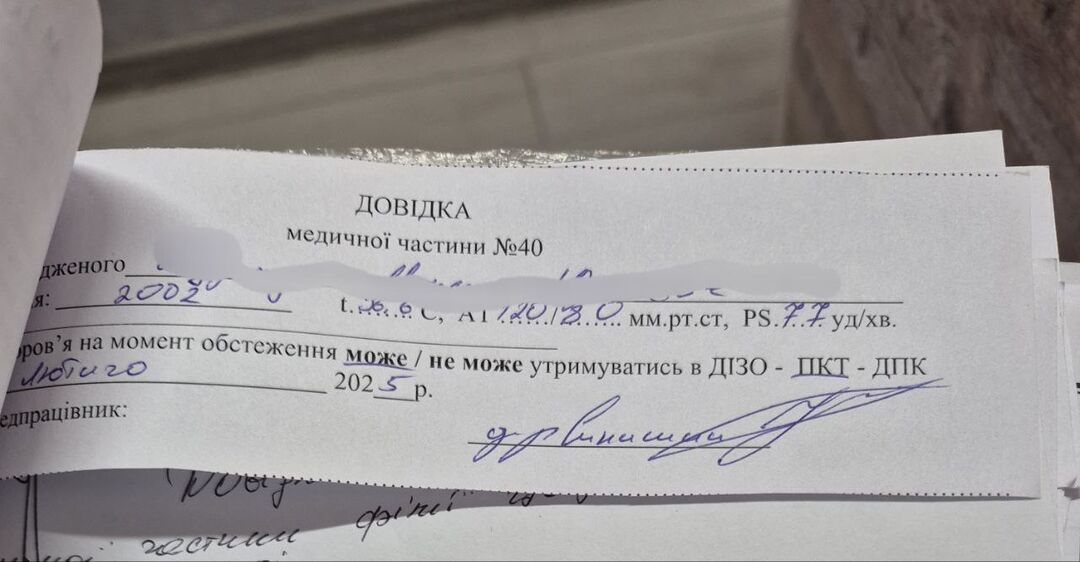 ДОВІДКА
медичної частини №40
дженого
я: 2002 t. 36.6 С, АТ 120/80 мм.рт.ст, PS.77 уд/хв.
ров’я на момент обстеження може / не може утримуватись в ДІЗО - ПКТ - ДПК
лютого 2025 р.
едпрацівник:
частини філії